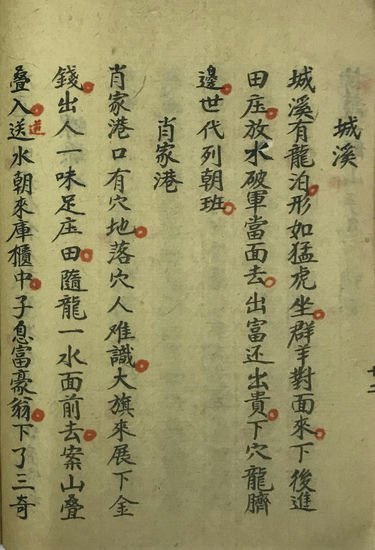 城溪
城溪有龍泊形如猛虎坐群羊對面來下後進
田庒放水破軍當面去出富还出貴下穴龍臍
邊世代列朝班
肖家港
肖家港口有穴地落穴人难識大旗來展下金
錢出人一味足庒田隨龍一水面前去案山叠
叠入送水朝來庫櫃中子息富豪翁下了三奇